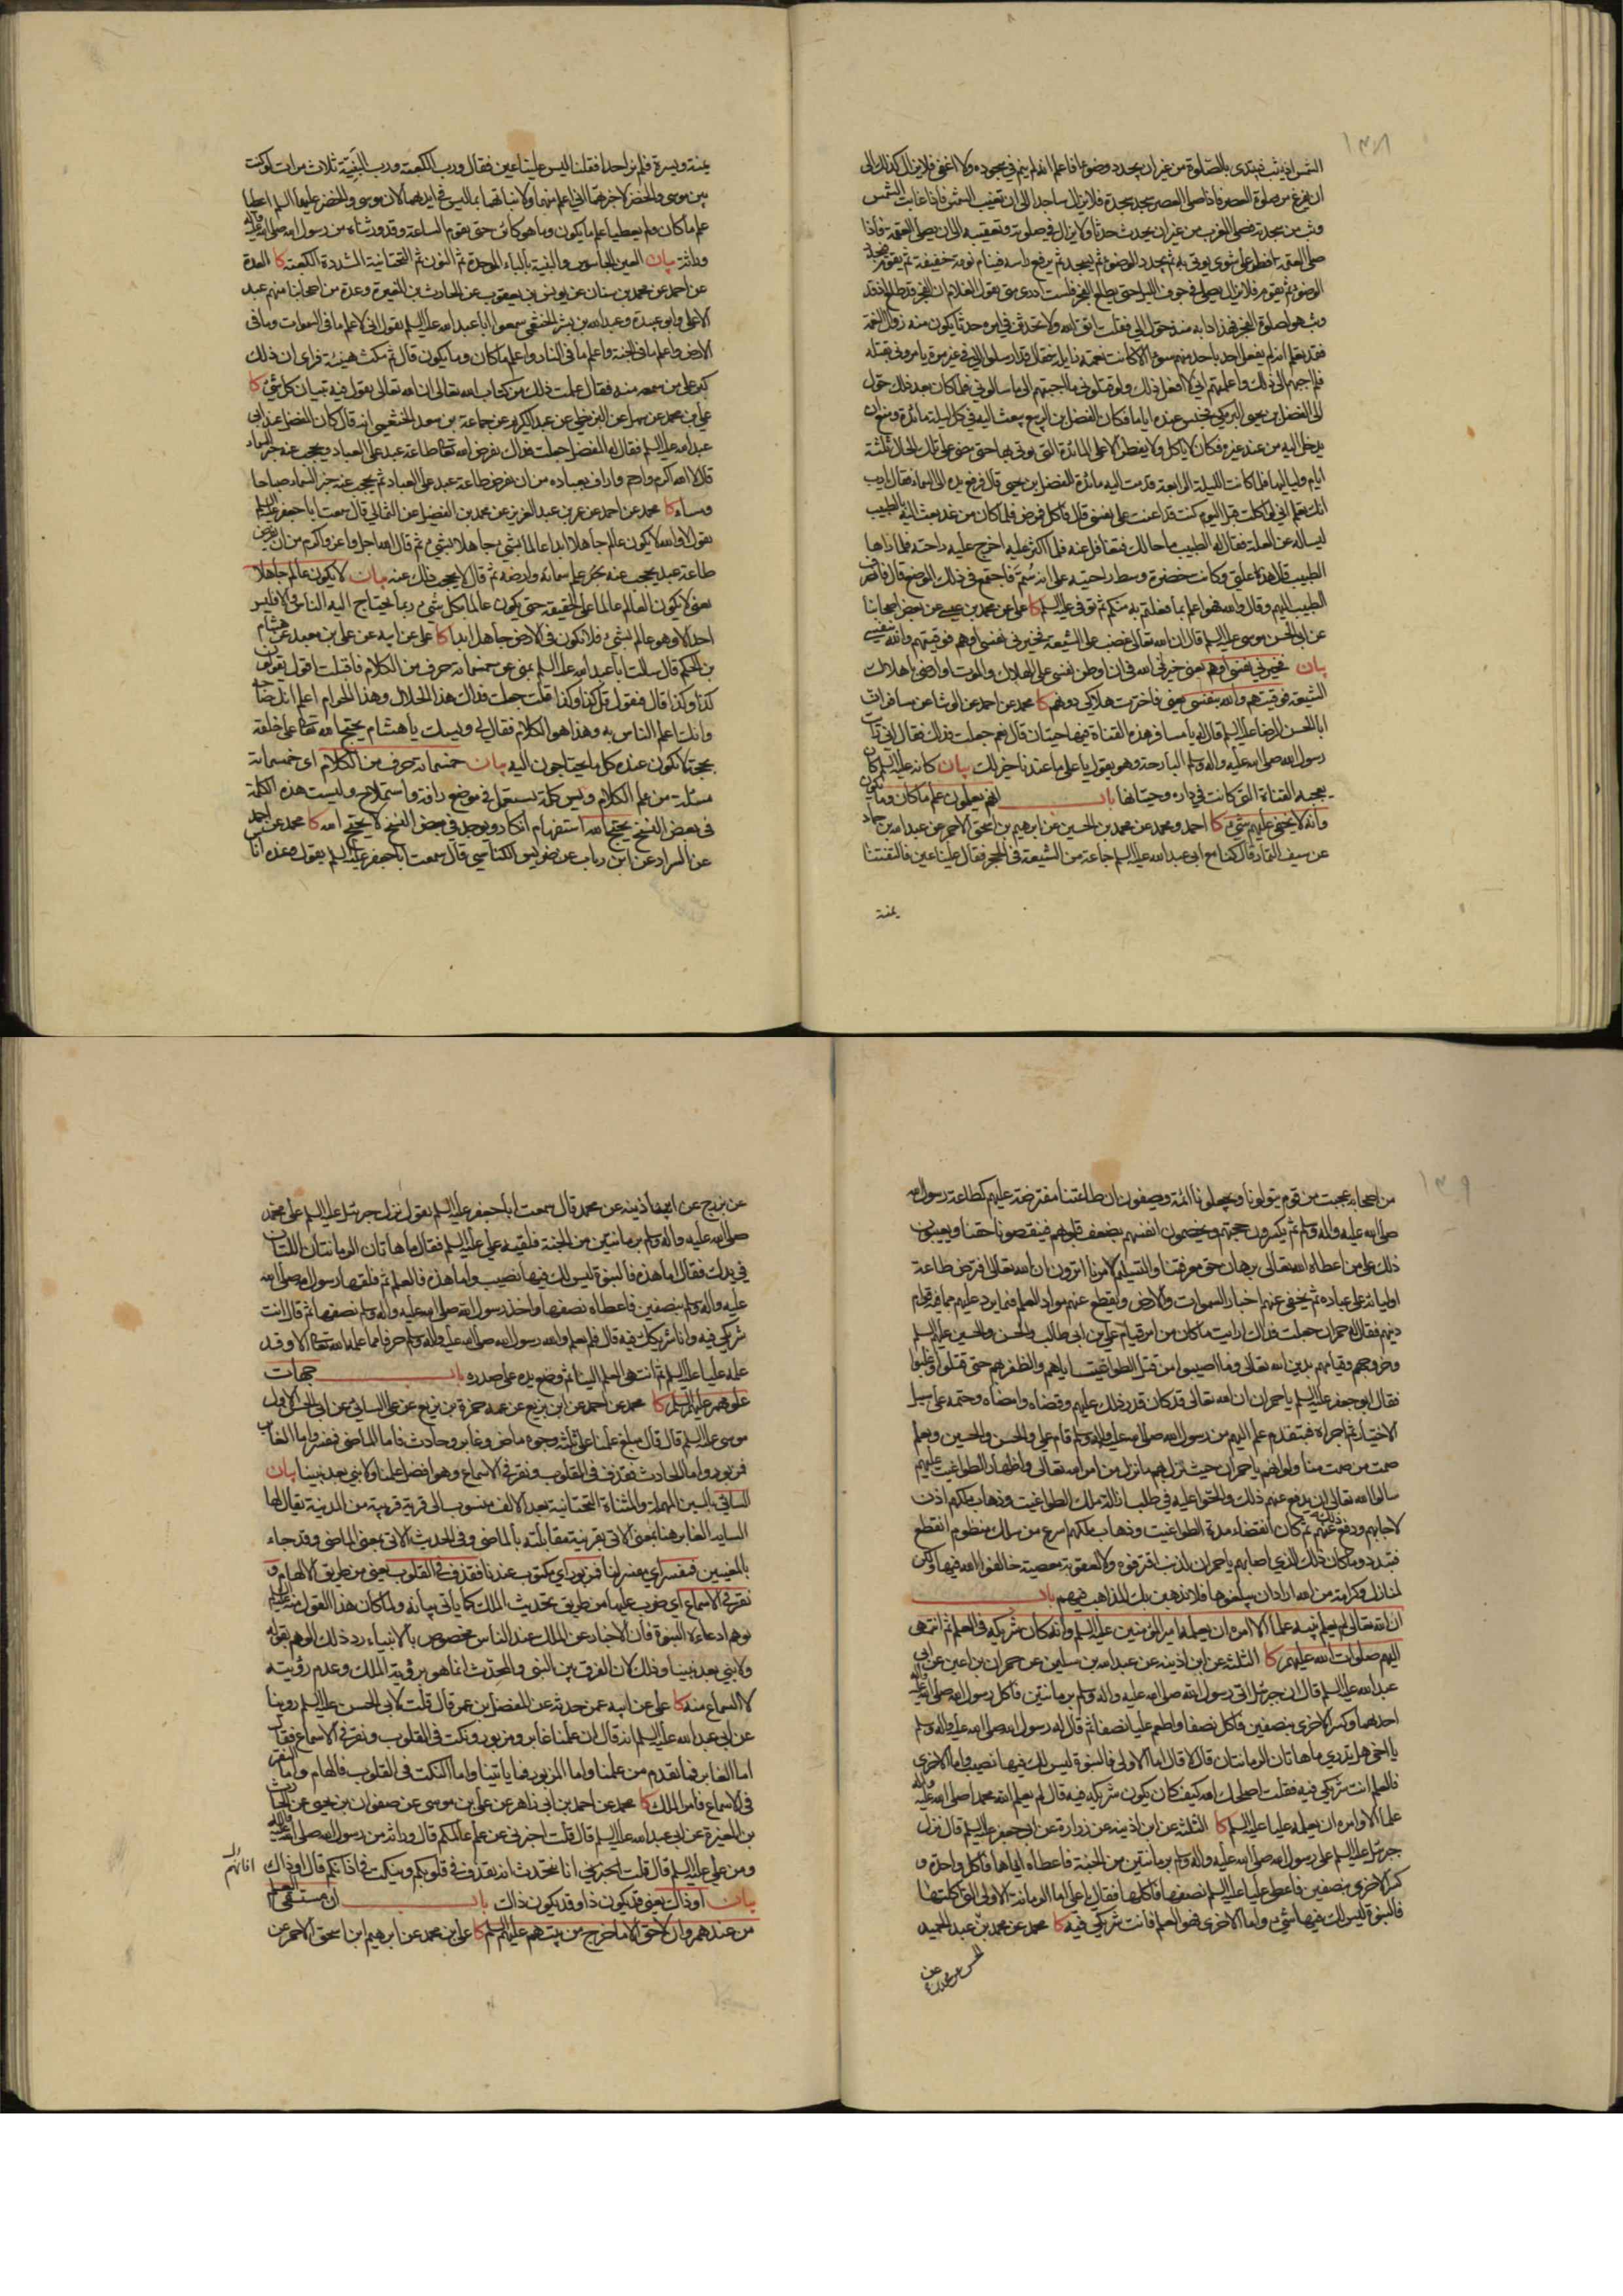 ١٣٨
الشمس اذ يثب فيبتدى بالصلوة من غير ان يجدد وضوءا فاعلم انه لم ينم في سجوده ولا اغفى فلا يزال كذلك الى
ان يفرغ من صلوة العصر فاذا صلى العصر سجد سجدة فلا يزال ساجدا الى ان تغيب الشمس فاذا غابت الشمس
وثب من سجدته فصلى المغرب من غير ان يحدث حدثا ولا يزال في صلوته وتعقيبه الى ان يصلى العتمة فاذا
صلى العتمة افطر على شوى يوتى به ثم يجدد الوضوء ثم يسجد ثم يرفع راسه فينام نومة خفيفة ثم يقوم فيجدد
الوضوء ثم يقوم فلا يزال يصلى في جوف الليل حتى يطلع الفجر فلست ادرى متى يقول الغلام ان الفجر قد طلع اذ قد
وثب هو لصلوة الفجر فهذا دابه منذ حول الى فقلت اتق الله ولا تحدثن في امره حدثا يكون منه زوال النعمة
فقد تعلم انه لم يفعل احد باحد منهم سوء الا كانت نعمته زايلة فقال قد ارسلوا الى في غير مرة يامرونى بقتله
فلم اجبهم الى ذلك واعلمتهم انى لا افعل ذلك ولو قتلونى ما اجبتهم الى ما سالونى فلما كان بعد ذلك حول
الى الفضل بن يحيى البرمكى فحبس عنده اياما فكان الفضل بن الربيع يبعث اليه في كل ليلة مائدة ومنع ان
يدخل اليه من عند غيره فكان لا ياكل ولا يفطر الا على المائدة التى يوتى بها حتى مضى على تلك الحال ثلثة
ايام ولياليها فلما كانت الليلة الرابعة قدمت اليه مائدة للفضل بن يحيى قال فرفع يده الى السماء فقال يارب
انك تعلم انى لو اكلت قبل اليوم كنت قد اعنت على نفسى قال فاكل فمرض فلما كان من غد بعث اليه بالطبيب
ليساله عن العلة فقال له الطبيب ما حالك فتغافل عنه فلما اكثر عليه اخرج عليه راحته فلما راها
الطبيب قال هذه علتى وكانت خضرة وسط راحته على انه سُمّ فاجتمع في ذلك الموضع قال فانصرف
الطبيب اليهم وقال والله لهو اعلم بما فعلتم به منكم ثم توفى عليه السلم كا على عن محمد بن عيسى عن بعض اصحابنا
عن ابى الحسن موسى عليه السلم قال ان الله تعالى غضب على الشيعة فخيرنى نفسى او هم فوقيتهم والله بنفسى
بيان فخيرنى نفسى او هم يعنى خيرنى الله في ان اوطن نفسى على الهلاك والموت او ارضى باهلاك
الشيعة فوقيتهم والله بنفسى يعنى فاخترت هلاكى دونهم كا محمد عن احمد عن الوشا عن مسافر ان
ابا الحسن الرضا عليه السلم قال له يا مسافر هذه القناة فيها حيتان قال نعم جعلت فداك فقال انى رايت
رسول الله صلى الله عليه واله وسلم البارحة وهو يقول يا على ما عندنا خير لك بيان كانه عليه السلم كان
يعجبه القناة التى كانت في داره وحيتانها باب انهم يعلمون علم ما كان وما يكون
وانه لا يخفى عليهم شىء كا احمد ومحمد عن محمد بن الحسين عن ابرهيم بن اسحق الاحمر عن عبد الله بن حماد
عن سيف التمار قال كنا مع ابى عبد الله عليه السلم جماعة من الشيعة في الحجر فقال علينا عين فالتفتنا
يمنة
يمنة ويسرة فلم نر احدا فقلنا ليس علينا عين فقال ورب الكعبة ورب البَنِيّة ثلاث مرات لو كنت
بين موسى والخضر لاخبرتهما انى اعلم منهما ولانباتهما بما ليس في ايديهما لان موسى والخضر عليهما السلم اعطيا
علم ما كان ولم يعطيا علم ما يكون وما هو كائن حتى يقوم الساعة وقد ورثناه من رسول الله صلى الله عليه واله
وراثة بيان العين الجاسوس والبنية بالباء الموحدة ثم النون ثم التحتانية المشددة الكعبة كا العدة
عن احمد عن محمد بن سنان عن يونس بن يعقوب عن الحارث بن المغيرة وعدة من اصحابنا منهم عبد
الاعلى وابو عبيدة وعبد الله بن بشر الخثعمى سمعوا ابا عبد الله عليه السلم يقول انى لاعلم ما في السموات وما في
الارض واعلم ما في الجنة واعلم ما في النار واعلم ما كان وما يكون قال ثم مكث هنيئة فراى ان ذلك
كبر على من سمعه منه فقال علمت ذلك من كتاب الله تعالى ان الله تعالى يقول فيه تبيان كل شىء كا
على بن محمد عن سهل عن البزنطى عن عبد الكريم عن جماعة بن سعد الخثعمى انه قال كان المفضل عند ابى
عبد الله عليه السلم فقال له المفضل جعلت فداك يفرض الله تعالى طاعة عبد على العباد ويحجب عنه خبر السماء
قال لا الله اكرم وارحم واراف بعباده من ان يفرض طاعة عبد على العباد ثم يحجب عنه خبر السماء صباحا
ومساء كا محمد عن احمد عن عمر بن عبد العزيز عن محمد بن الفضيل عن الثمالى قال سمعت ابا جعفر عليه السلم
يقول لا والله لا يكون عالم جاهلا ابدا عالما بشىء جاهلا بشىء ثم قال الله اجل واعز واكرم من ان يفرض
طاعة عبد يحجب عنه علم سمائه وارضه ثم قال لا يحجب ذلك عنه بيان لا يكون عالم جاهلا
يعنى لا يكون العالم عالما على الحقيقة حتى يكون عالما بكل شىء ربما يحتاج اليه الناس والا فليس
احد الا وهو عالم بشىء فلا يكون في الارض جاهل ابدا كا على عن ابيه عن على بن معبد عن هشام
بن الحكم قال سالت ابا عبد الله عليه السلم بمنى عن خمسمائة حرف من الكلام فاقبلت اقول يقولون
كذا وكذا قال فيقول قل كذا وكذا قلت جعلت فداك هذا الحلال وهذا الحرام اعلم انك صاحبه
وانك اعلم الناس به وهذا هو الكلام فقال لى ويسك يا هشام يحتج الله تعالى على خلقه
بحجة لا يكون عنده كل ما يحتاجون اليه بيان خمسمائة حرف من الكلام اى خمسمائة
مسئلة من علم الكلام وويس كلمة تستعمل في موضع رافة واستملاح وليست هذه الكلمة
في بعض النسخ يحتج الله استفهام انكار ويوجد في بعض النسخ لا يحتج الله كا محمد عن احمد
عن السراد عن ابن رئاب عن ضريس الكناسى قال سمعت ابا جعفر عليه السلم يقول وعنده اناس
١٣٩
من اصحابه عجبت من قوم يتولونا ويجعلونا ائمة ويصفون ان طاعتنا مفترضة عليهم كطاعة رسول الله
صلى الله عليه واله وسلم ثم يكسرون حجتهم ويخصمون انفسهم بضعف قلوبهم فينقصونا حقنا ويعيبون
ذلك على من اعطاه الله تعالى برهان حق معرفتنا والتسليم لامرنا اترون ان الله تعالى افترض طاعة
اوليائه على عباده ثم يخفى عنهم اخبار السموات والارض ويقطع عنهم مواد العلم فيما يرد عليهم مما فيه قوام
دينهم فقال له حمران جعلت فداك ارايت ما كان من امر قيام على بن ابى طالب والحسن والحسين عليهم السلم
وخروجهم وقيامهم بدين الله تعالى وما اصيبوا من قتل الطواغيت اياهم والظفر بهم حتى قتلوا وغلبوا
فقال ابو جعفر عليه السلم يا حمران ان الله تعالى قد كان قدر ذلك عليهم وقضاه وامضاه وحتمه على سبيل
الاختيار ثم اجراه فبتقدم علم اليهم من رسول الله صلى الله عليه واله وسلم قام على والحسن والحسين وبعلم
صمت من صمت منا ولو انهم يا حمران حيث نزل بهم ما نزل من امر الله تعالى واظهار الطواغيت عليهم
سالوا الله تعالى ان يدفع عنهم ذلك والحوا عليه في طلب ازالة ملك الطواغيت وذهاب ملكهم اذن
لاجابهم ودفع ذلك عنهم ثم كان انقضاء مدة الطواغيت وذهاب ملكهم اسرع من سلك منظوم انقطع
فتبدد وما كان ذلك الذى اصابهم يا حمران لذنب اقترفوه ولا لعقوبة معصية خالفوا الله فيها ولكن
لمنازل وكرامة من الله اراد ان يبلغوها فلا تذهبن بك المذاهب فيهم باب
ان الله تعالى لم يعلم نبيه علما الا امره ان يعلمه امير المؤمنين عليه السلم وانه كان شريكه في العلم ثم انتهى
اليهم صلوات الله عليهم كا الثلثة عن ابن اذينه عن عبد الله بن سليمن عن حمران بن اعين عن ابى
عبد الله عليه السلم قال ان جبرئيل اتى رسول الله صلى الله عليه واله وسلم برمانتين فاكل رسول الله صلى الله عليه واله
احدهما وكسر الاخرى بنصفين فاكل نصفا واطعم عليا نصفا ثم قال له رسول الله صلى الله عليه واله وسلم
يا اخى هل تدرى ما هاتان الرمانتان قال لا قال اما الاولى فالنبوة ليس لك فيها نصيب واما الاخرى
فالعلم انت شريكى فيه فقلت اصلحك الله كيف كان يكون شريكه فيه قال لم يعلم الله محمدا صلى الله عليه واله
علما الا وامره ان يعلمه عليا عليه السلم كا الثلثة عن ابن اذينه عن زرارة عن ابى جعفر عليه السلم قال نزل
جبرئيل عليه السلم على رسول الله صلى الله عليه واله وسلم برمانتين من الجنة فاعطاه اياهما فاكل واحدة و
كسر الاخرى بنصفين فاعطى عليا عليه السلم نصفها فاكلها فقال يا على اما الرمانة الاولى التى اكلتها
فالنبوة ليس لك فيها شىء واما الاخرى فهو العلم فانت شريكى فيه كا محمد عن محمد بن عبد الحميد
عن بزرج عن ابن اذينه عن محمد قال سمعت ابا جعفر عليه السلم يقول نزل جبرئيل عليه السلم على محمد
صلى الله عليه واله وسلم برمانتين من الجنة فلقيه على عليه السلم فقال ما هاتان الرمانتان اللتان
في يدك فقال اما هذه فالنبوة ليس لك فيها نصيب واما هذه فالعلم ثم فلقها رسول الله صلى الله
عليه واله وسلم بنصفين فاعطاه نصفها واخذ رسول الله صلى الله عليه واله وسلم نصفها ثم قال انت
شريكى فيه وانا شريكك فيه قال فلم يعلم والله رسول الله صلى الله عليه واله وسلم حرفا مما علمه الله تعالى الا وقد
علمه عليا عليه السلم ثم انتهى العلم الينا ثم وضع يده على صدره باب جهات
علومهم عليهم السلم كا محمد عن احمد عن ابن بزيع عن عمه حمزة بن بزيع عن على السائى عن ابى الحسن الاول
موسى عليه السلم قال قال مبلغ علمنا على ثلثة وجوه ماض وغابر وحادث فاما الماضى فمفسر واما الغابر
فمزبور واما الحادث فقذف في القلوب ونقر في الاسماع وهو افضل علمنا ولا نبى بعد نبينا بيان
السائى بالسين المهملة والمثناة التحتانية بعد الالف منسوب الى قرية قريبة من المدينة يقال لها
الساية الغابر هنا بمعنى الاتى بقرينة مقابلته بالماضى وفي الحديث الاتى بمعنى الماضى وقد جاء
بالمعنيين فمفسر اى مفسر لنا فمزبور اى مكتوب عندنا فقذف في القلوب يعنى من طريق الالهام و
نقر في الاسماع اى ضرب عليها من طريق تحديث الملك كما ياتى بيانه ولما كان هذا القول منه عليه السلم
يوهم ادعاءه النبوة فان الاخبار عن الملك عند الناس مخصوص بالانبياء رد ذلك الوهم بقوله
ولا نبى بعد نبينا وذلك لان الفرق بين النبى والمحدث انما هو برؤية الملك وعدم رؤيته
لا السماع منه كا على عن ابيه عمن حدثه عن المفضل بن عمر قال قلت لابى الحسن عليه السلم روينا
عن ابى عبد الله عليه السلم انه قال ان علمنا غابر ومزبور ونكت في القلوب ونقر في الاسماع فقال
اما الغابر فما تقدم من علمنا واما المزبور فما ياتينا واما النكت في القلوب فالهام واما النقر
في الاسماع فامر الملك كا محمد عن احمد بن ابى زاهر عن على بن موسى عن صفوان بن يحيى عن الحارث
بن المغيرة عن ابى عبد الله عليه السلم قال قلت اخبرنى عن علم عالمكم قال وراثة من رسول الله صلى الله عليه واله
ومن على عليه السلم قال قلت انا نتحدث انه يقذف في قلوبكم وينكت في اذانكم قال او ذاك
بيان او ذاك يعنى قد يكون ذا وقد يكون ذاك باب ان مستقى العلم
من عندهم وان لا حق الا ما خرج من بيتهم عليهم السلم كا على بن محمد عن ابرهيم ابن اسحق الاحمر عن